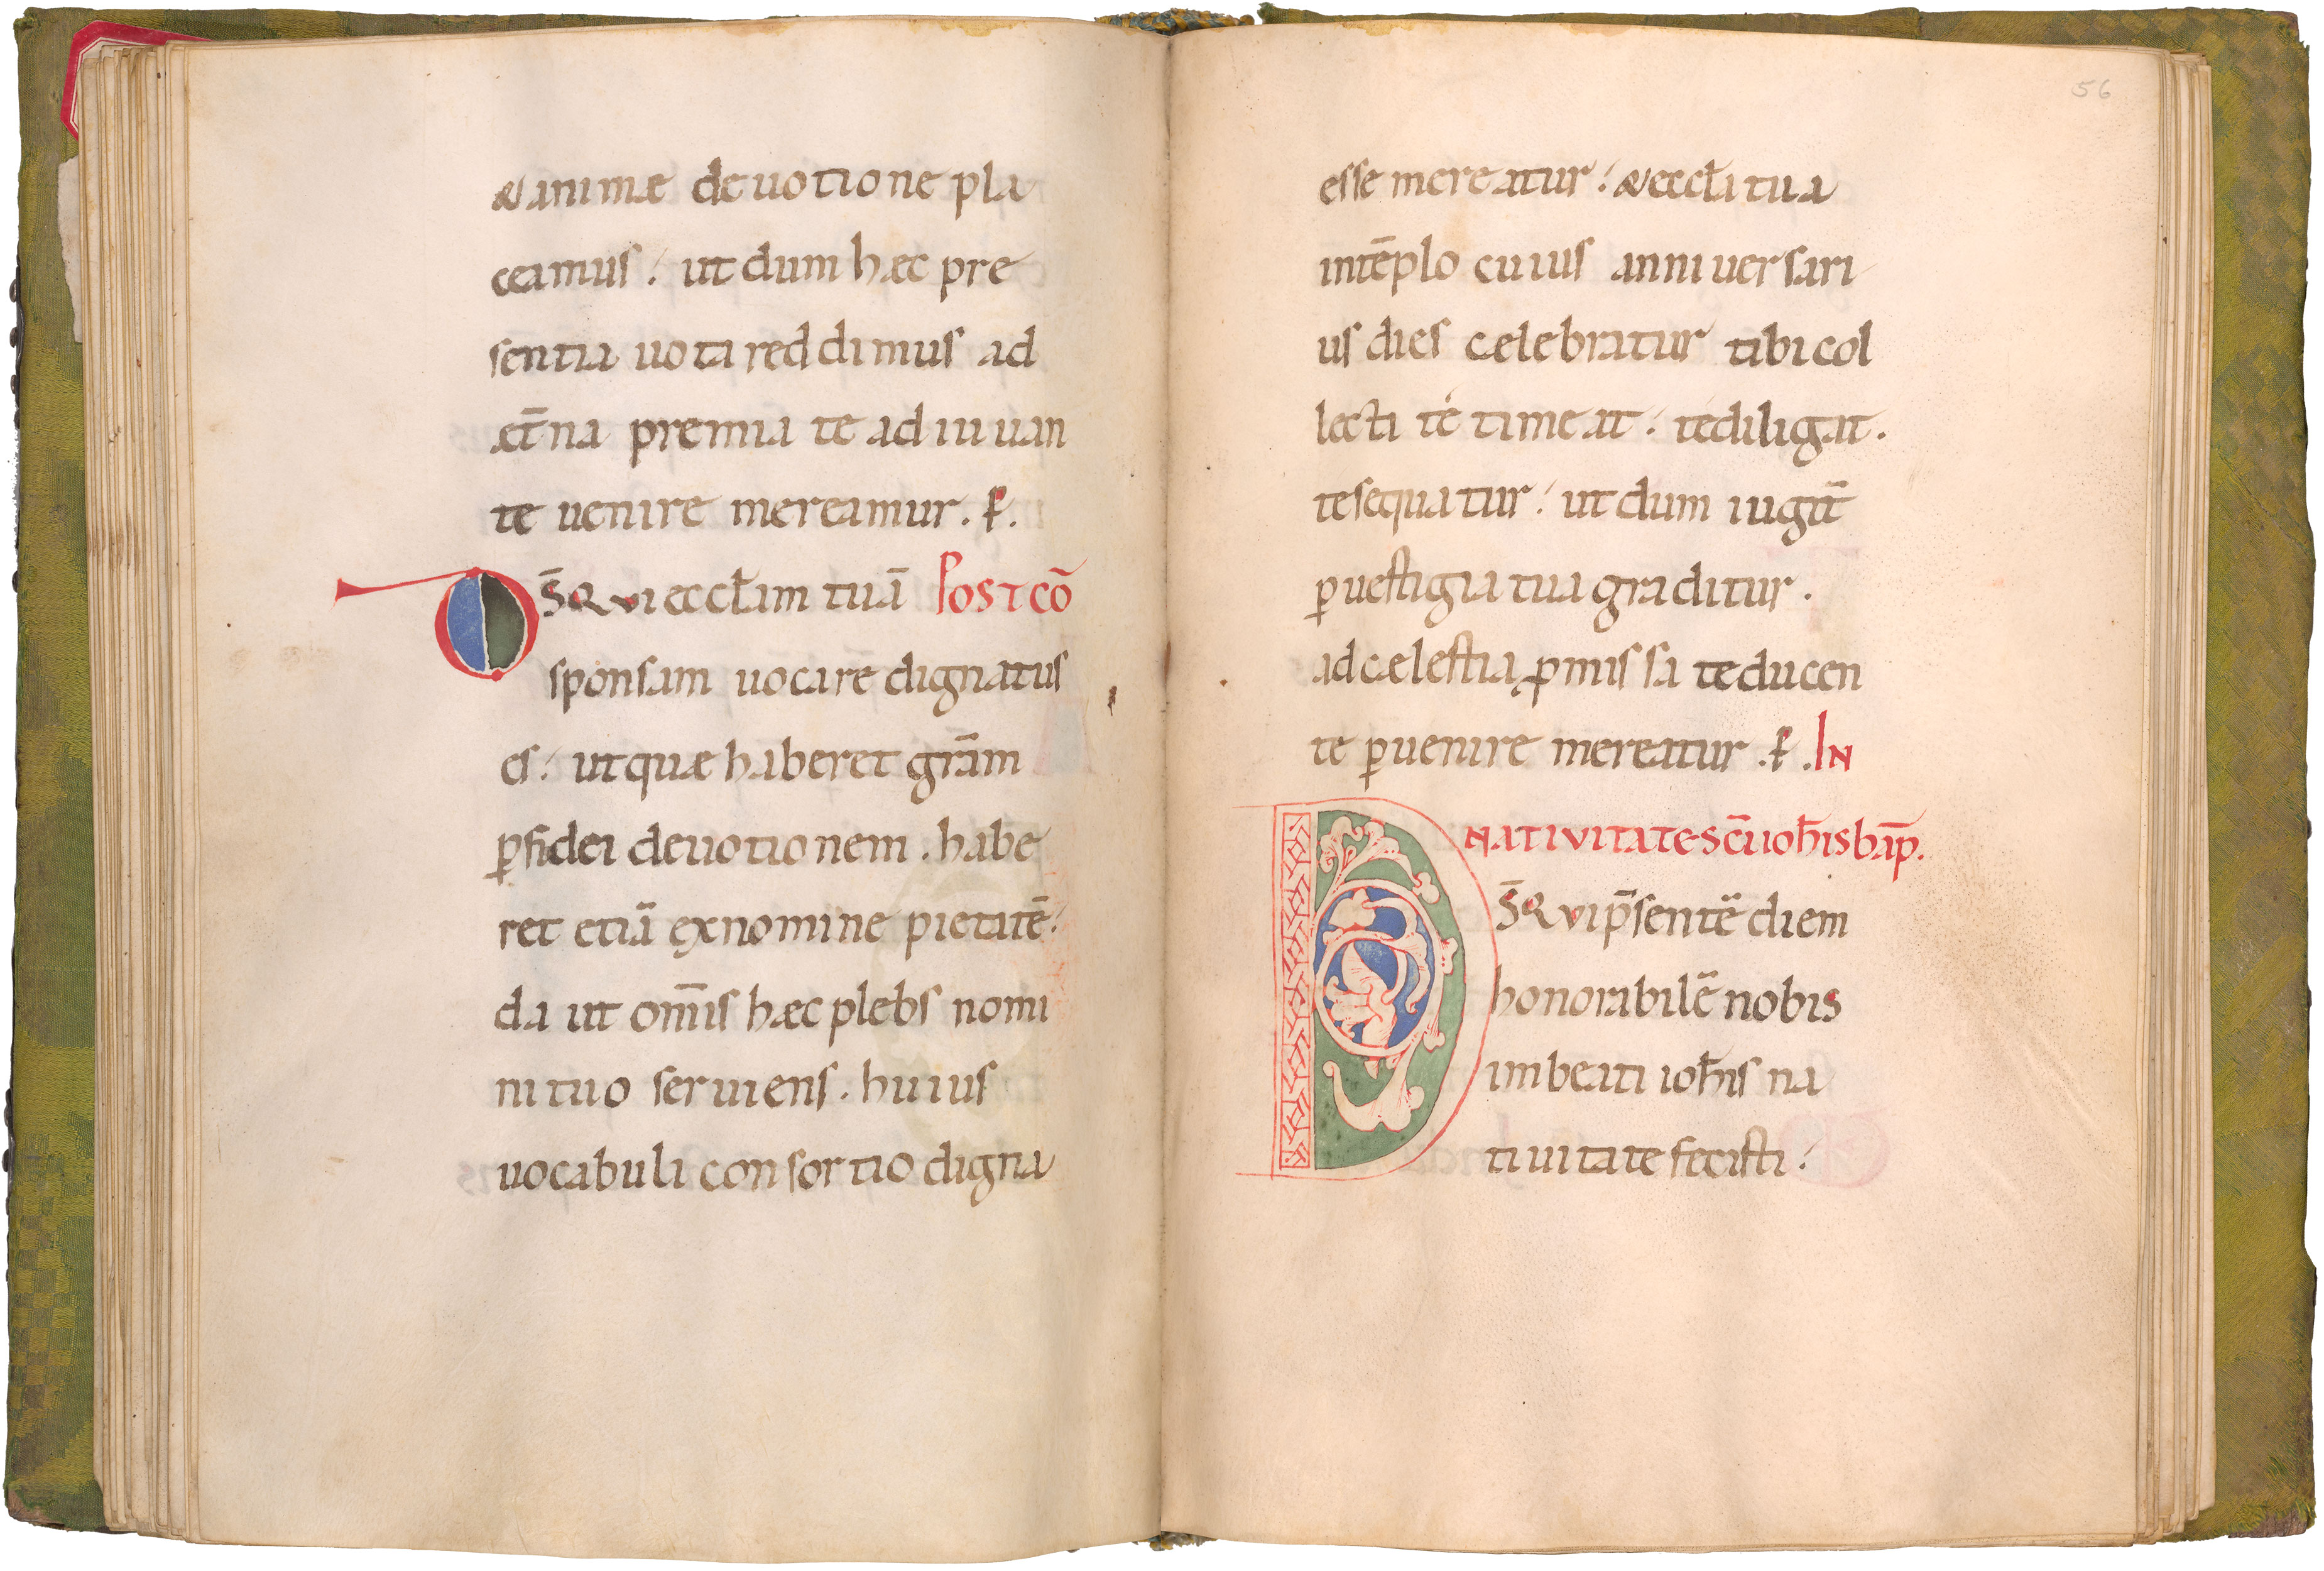 & animae deuotione pla
ceamus. ut dum haec pre
sentia uota reddimus ad
aet̄na premia te adiuuan
te uenire mereamur. P̱.
DS̄ QVI ecc̄lam tuā Postcō
sponsam uocare dignatus
es. ut quae haberet grām
ꝑ fidei deuotionem. habe
ret etiā ex nomine pietatē.
da ut om̄is haec plebs nomi
ni tuo seruiens. huius
uocabuli consortio digna
56
esse mereatur. & ecc̄la tua
in tēplo cuius anniuersari
us dies celebratur tibi col
lecta te timeat. te diligat.
te sequatur. ut dum iugit̄
ꝑ uestigia tua graditur.
ad caelestia ꝓmissa te ducen
te ꝑuenire mereatur. P̱. IN
NATIVITATE SC̄I IOH̄IS BAP̄.
DS̄ QVI p̄sentē diem
honorabilē nobis
in beati ioh̄is na
tiuitate fecisti.